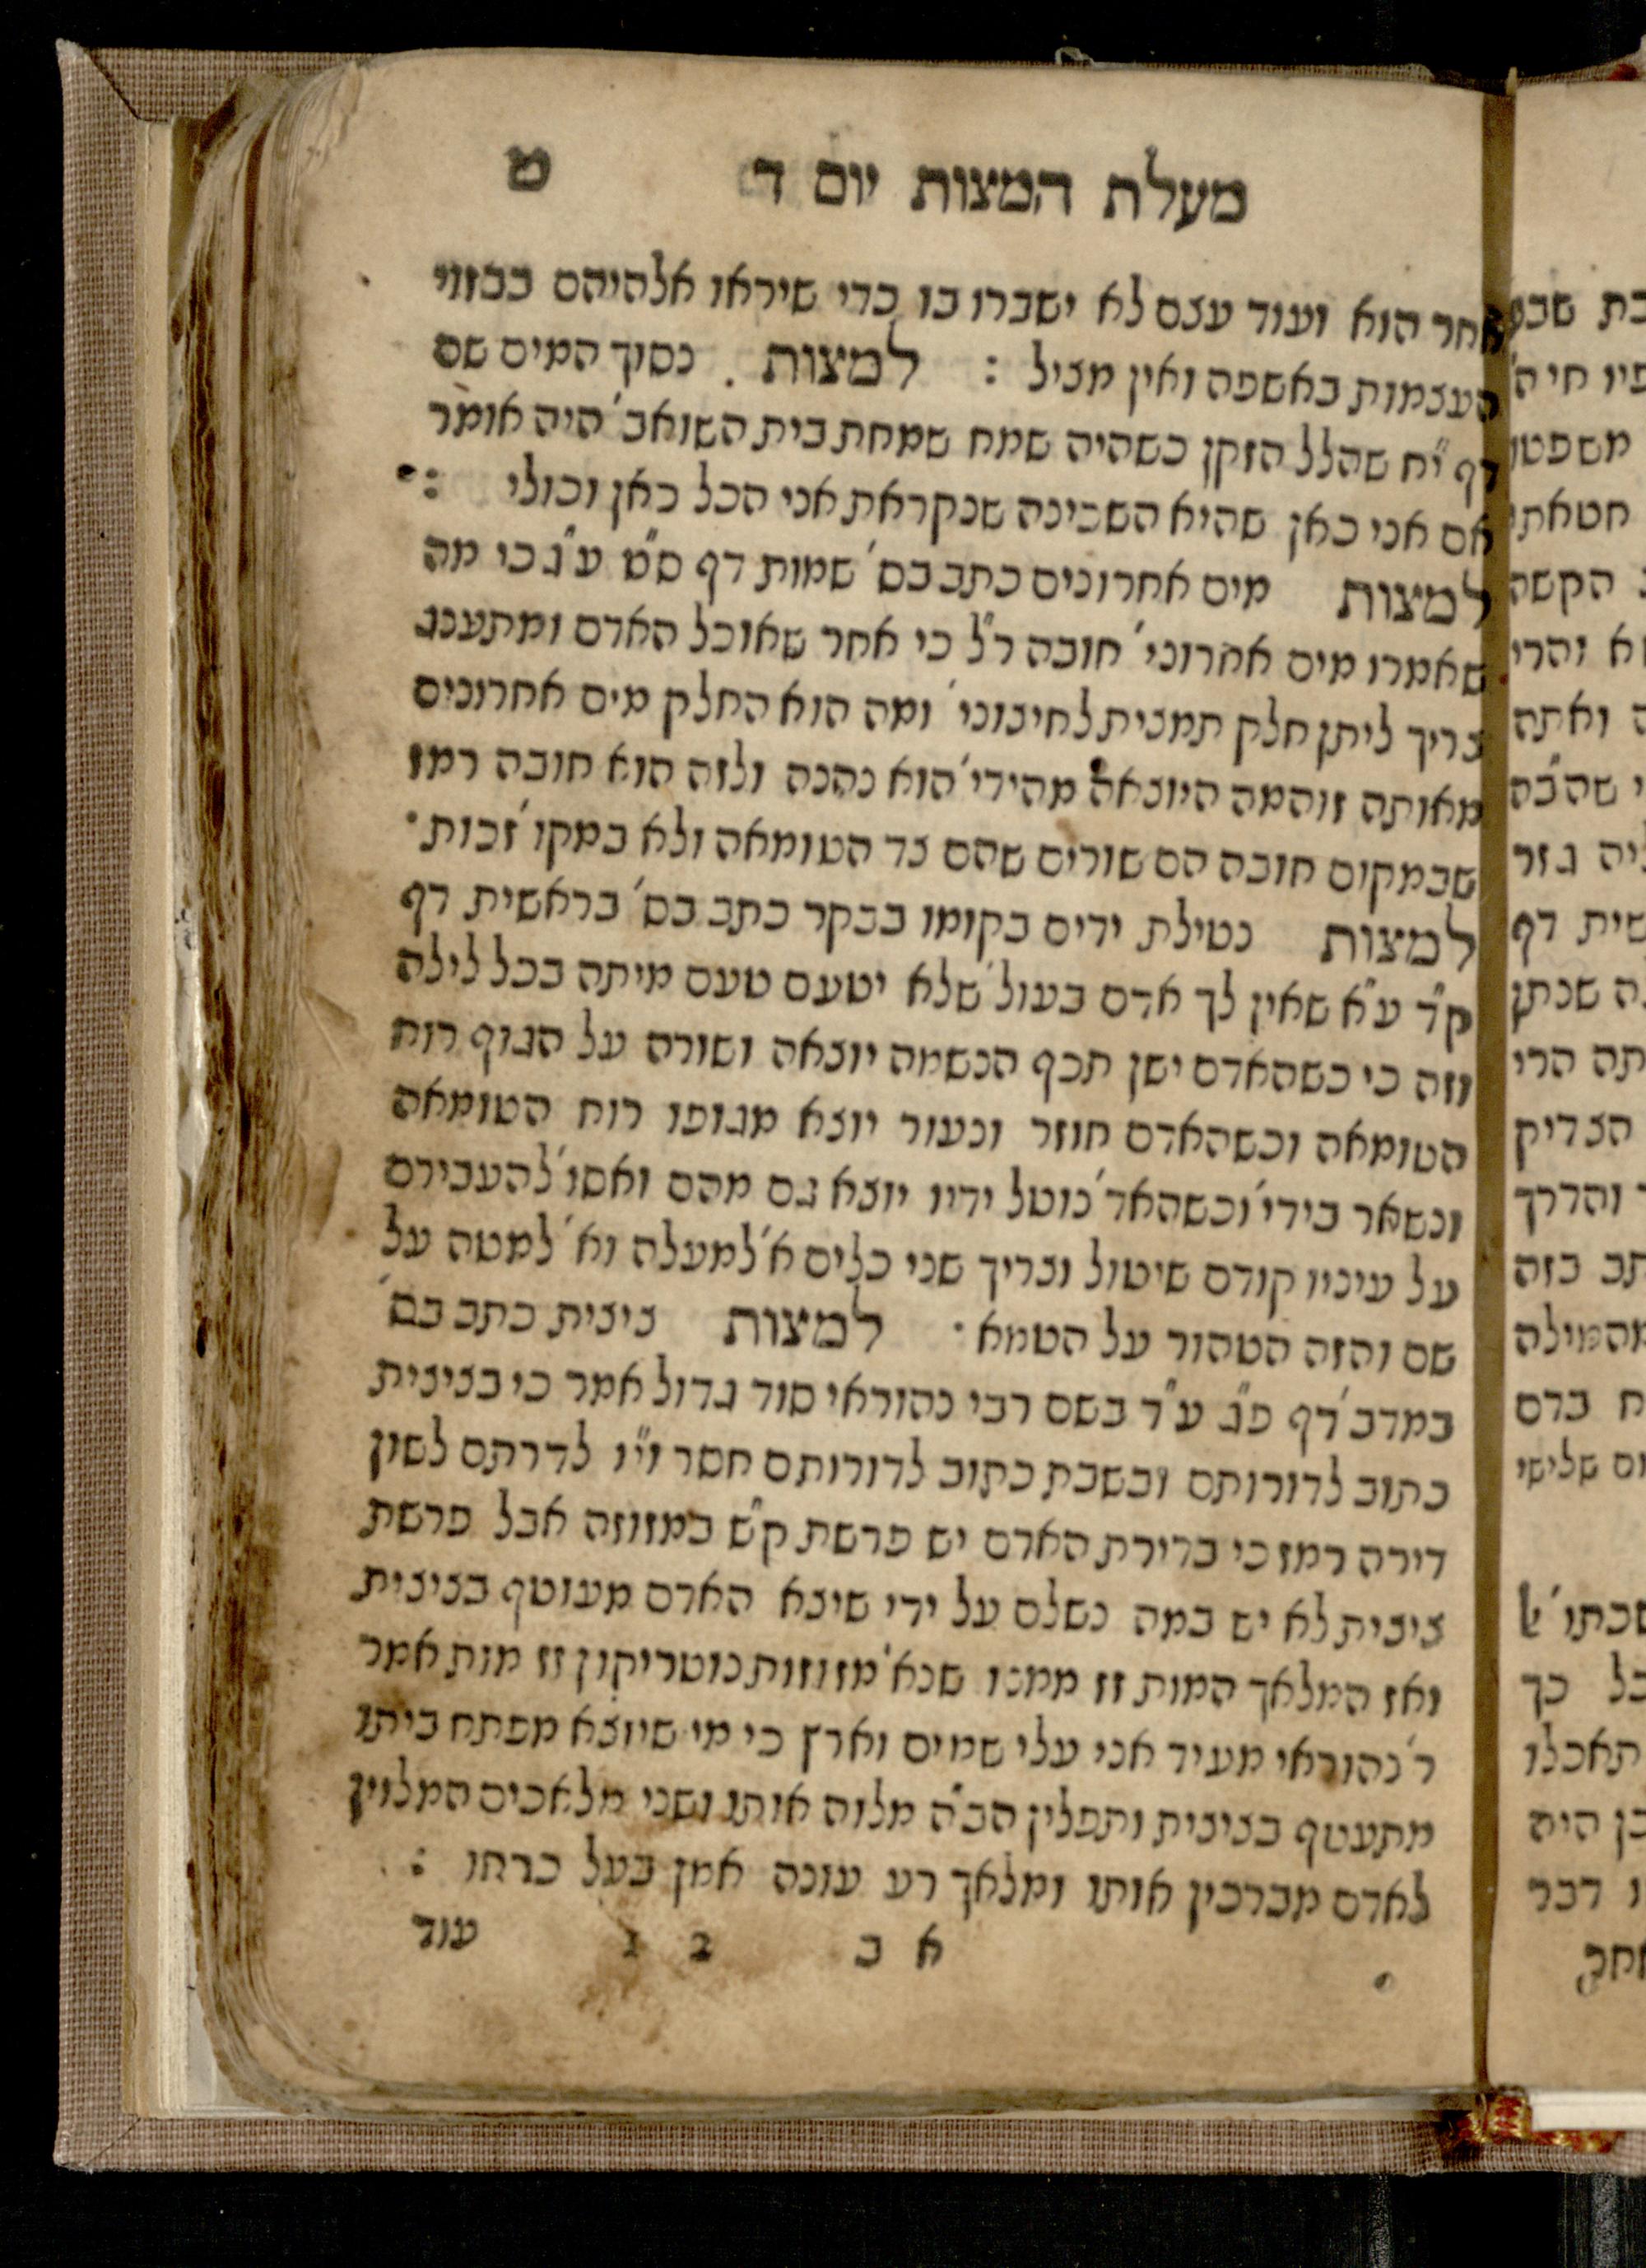 מעלת המצות יום ד ט
אחר הוא ועוד עצם לא ישברו בו כדי שיראו אלהיהם בבזוי
העצמות באשפה ואין מציל : למצות . נסוך המים שם
דף י"ח שהלל הזקן כשהיה שמח שמחת בית השואב' היה אומר
אם אני כאן שהיא השכינה שנקראת אני הכל כאן וכולי :
למצות מים אחרונים כתב בס' שמות דף ס"ט ע"ג כי מה
שאמרו מים אחרוני' חובה ר"ל כי אחר שאוכל האדם ומתענג
צריך ליתן חלק תמצית לחיצוני' ומה הוא החלק מים אחרונים
מאותה זוהמה היוצאה מהידי' הוא נהנה ולזה הוא חובה רמז
שבמקום חובה הם שורים שהם צד הטומאה ולא במקו' זכות .
למצות נטילת ידים בקומו בבקר כתב בס' בראשית דף
ק"ד ע"א שאין לך אדם בעול' שלא יטעם טעם מיתה בכל לילה
וזה כי כשהאדם ישן תכף הנשמה יוצאה ושורה על הגוף רוח
הטומאה וכשהאדם חוזר ונעור יוצא מגופו רוח הטומאה
ונשאר בידי' וכשהאד' נוטל ידיו יוצא גם מהם ואסו' להעבירם
על עיניו קודם שיטול וצריך שני כלים א' למעלה וא' למטה על
שם והזה הטהור על הטמא . למצות ציצית כתב בס'
במדב' דף פ"ג ע"ד בשם רבי נהוראי סוד גדול אמר כי בציצית
כתוב לדורותם ובשבת כתוב לדורותם חסר וי"ו לדרתם לשון
דירה רמז כי בדירת האדם יש פרשת ק"ש במזוזה אבל פרשת
ציצית לא יש במה נשלם על ידי שיצא האדם מעוטף בציצית
ואז המלאך המות זז ממנו שנא' מזוזות נוטריקון זז מות אמר
ר' נהוראי מעיד אני עלי שמים וארץ כי מי שיוצא מפתח ביתו
מתעטף בציצית ותפלין הב"ה מלוה אותו ושני מלאכים המלוין
לאדם מברכין אותו ומלאך רע עונה אמן בעל כרחו :
א ב ב ג עוד
בת שבע
פיו חי ה'
משפטו
חטאתי
הקשה
והרי
ואתה
שהב"ה
גזר
שית דף
שנתן
הרי
הצדיק
והדרך
בזה
מהמילה
בדם
שלישי
כך
תאכלו
היה
דבר